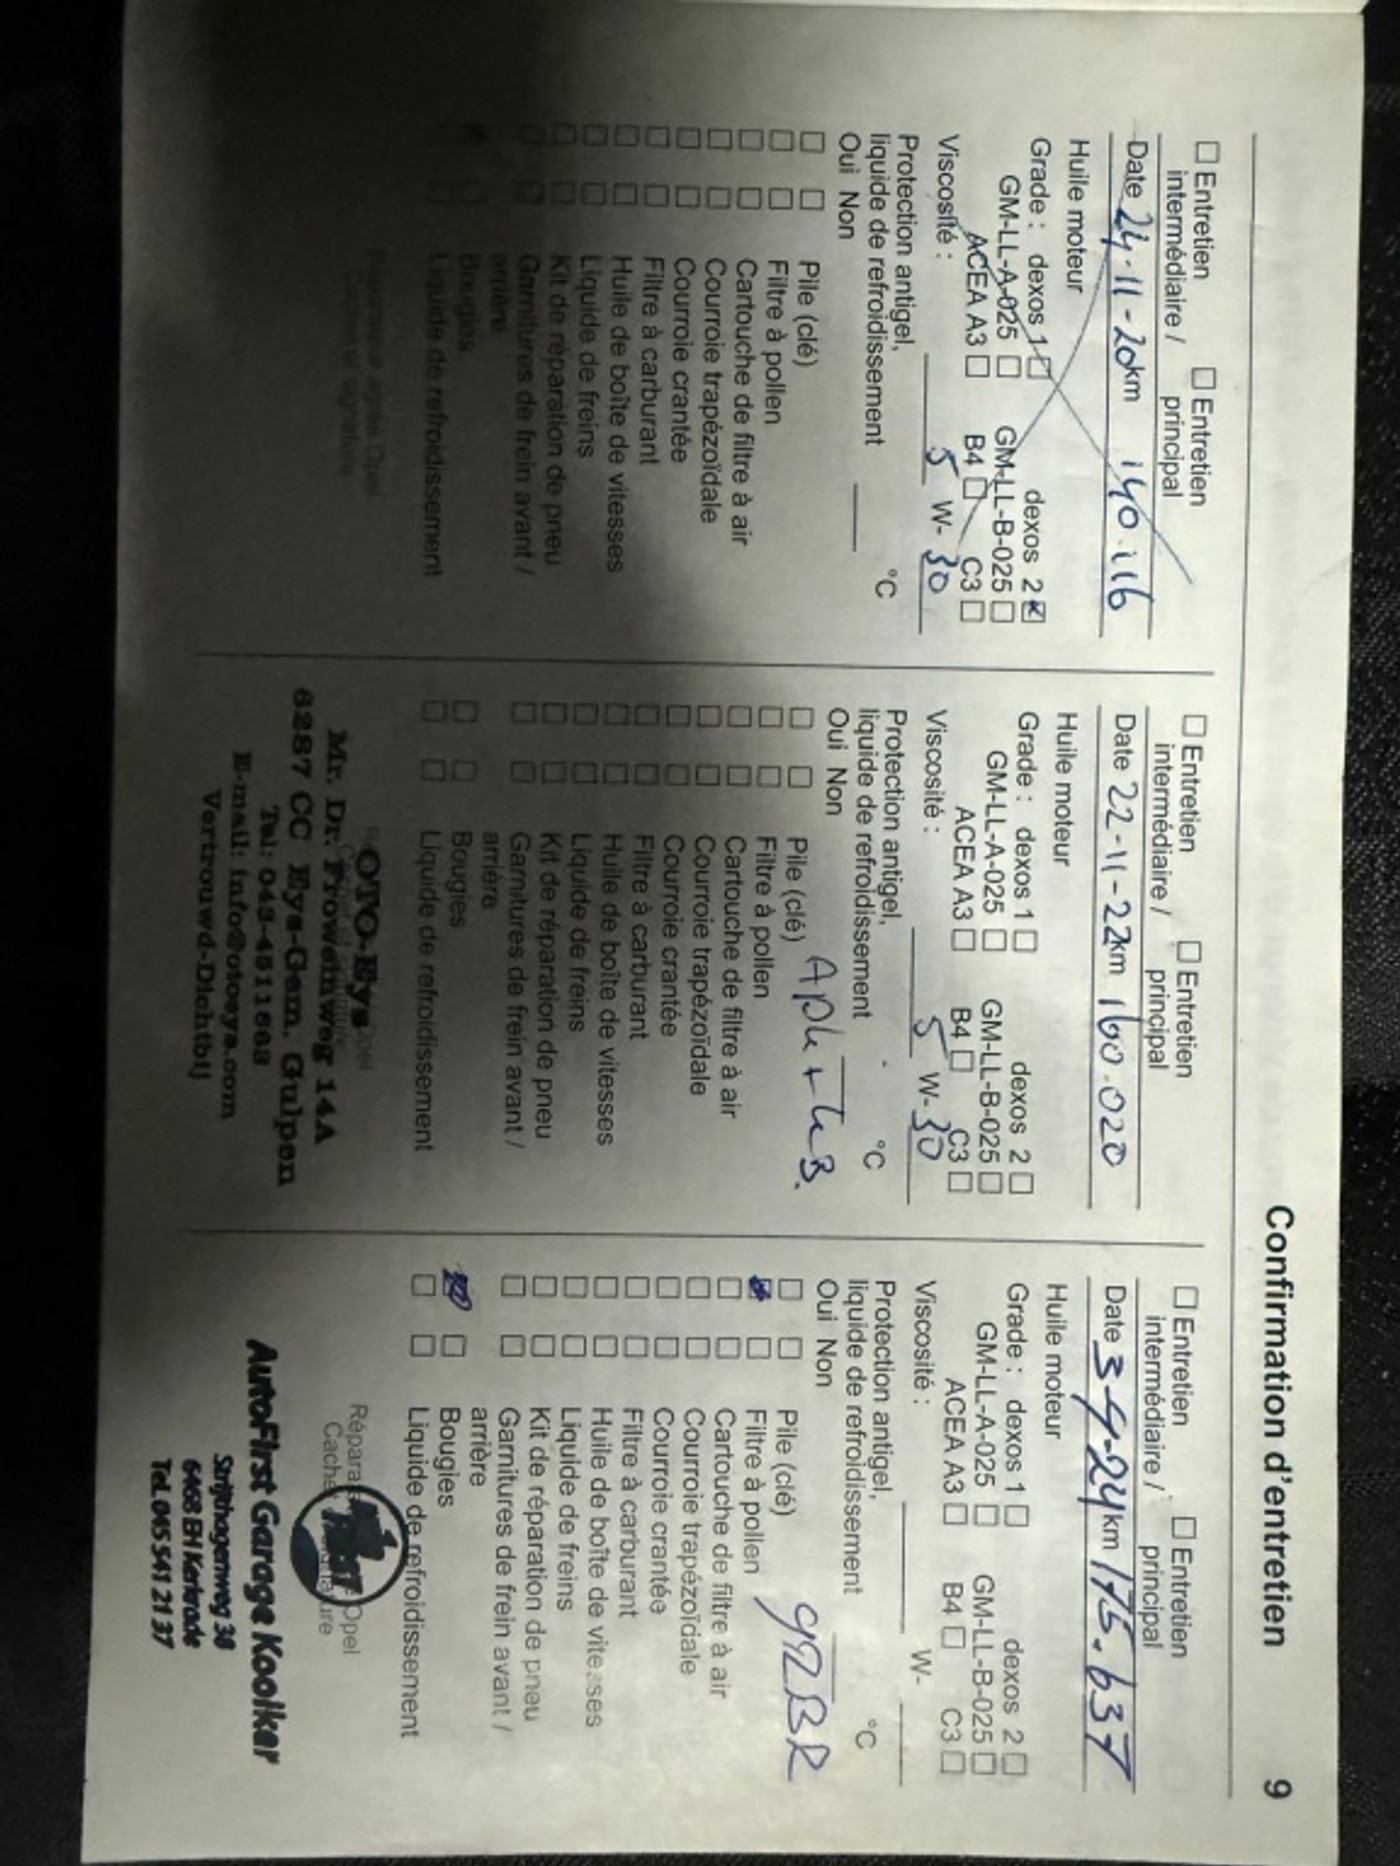 Confirmation d'entretien 9
☐ Entretien intermédiaire / ☐ Entretien principal
Date 24-11-20 km 140.116
Huile moteur
Grade : dexos 1 ☐ dexos 2 ☒
GM-LL-A-025 ☐ GM-LL-B-025 ☐
ACEA A3 ☐ B4 ☐ C3 ☐
Viscosité : 5 W- 30
Protection antigel,
liquide de refroidissement ____ °C
Oui Non
☐ ☐ Pile (clé)
☐ ☐ Filtre à pollen
☐ ☐ Cartouche de filtre à air
☐ ☐ Courroie trapézoïdale
☐ ☐ Courroie crantée
☐ ☐ Filtre à carburant
☐ ☐ Huile de boîte de vitesses
☐ ☐ Liquide de freins
☐ ☐ Kit de réparation de pneu
☐ ☐ Garnitures de frein avant /
arrière
Bougies
Liquide de refroidissement
☐ Entretien intermédiaire / ☐ Entretien principal
Date 22-11-22 km 160.020
Huile moteur
Grade : dexos 1 ☐ dexos 2 ☐
GM-LL-A-025 ☐ GM-LL-B-025 ☐
ACEA A3 ☐ B4 ☐ C3 ☐
Viscosité : 5 W- 30
Protection antigel,
liquide de refroidissement ____ °C
Oui Non
☐ ☐ Pile (clé)
☐ ☐ Filtre à pollen
☐ ☐ Cartouche de filtre à air
☐ ☐ Courroie trapézoïdale
☐ ☐ Courroie crantée
☐ ☐ Filtre à carburant
☐ ☐ Huile de boîte de vitesses
☐ ☐ Liquide de freins
☐ ☐ Kit de réparation de pneu
☐ ☐ Garnitures de frein avant /
arrière
☐ ☐ Bougies
☐ ☐ Liquide de refroidissement
OTO-Eys
Mr. Dr. Froweinweg 14A
6287 CC Eys-Gem. Gulpen
Tel: 043-4511663
E-mail: info@otoeys.com
Vertrouwd-Dichtbij
☐ Entretien intermédiaire / ☐ Entretien principal
Date 3-4-24 km 175.637
Huile moteur
Grade : dexos 1 ☐ dexos 2 ☐
GM-LL-A-025 ☐ GM-LL-B-025 ☐
ACEA A3 ☐ B4 ☐ C3 ☐
Viscosité : ____ W- ____
Protection antigel,
liquide de refroidissement ____ °C
Oui Non
☐ ☐ Pile (clé)
☒ ☐ Filtre à pollen
☐ ☐ Cartouche de filtre à air
☐ ☐ Courroie trapézoïdale
☐ ☐ Courroie crantée
☐ ☐ Filtre à carburant
☐ ☐ Huile de boîte de vitesses
☐ ☐ Liquide de freins
☐ ☐ Kit de réparation de pneu
☐ ☐ Garnitures de frein avant /
arrière
☒ ☐ Bougies
☐ ☐ Liquide de refroidissement
AutoFirst Garage Koolker
Strijthagenweg 38
6468 EH Kerkrade
Tel. 045 541 21 37